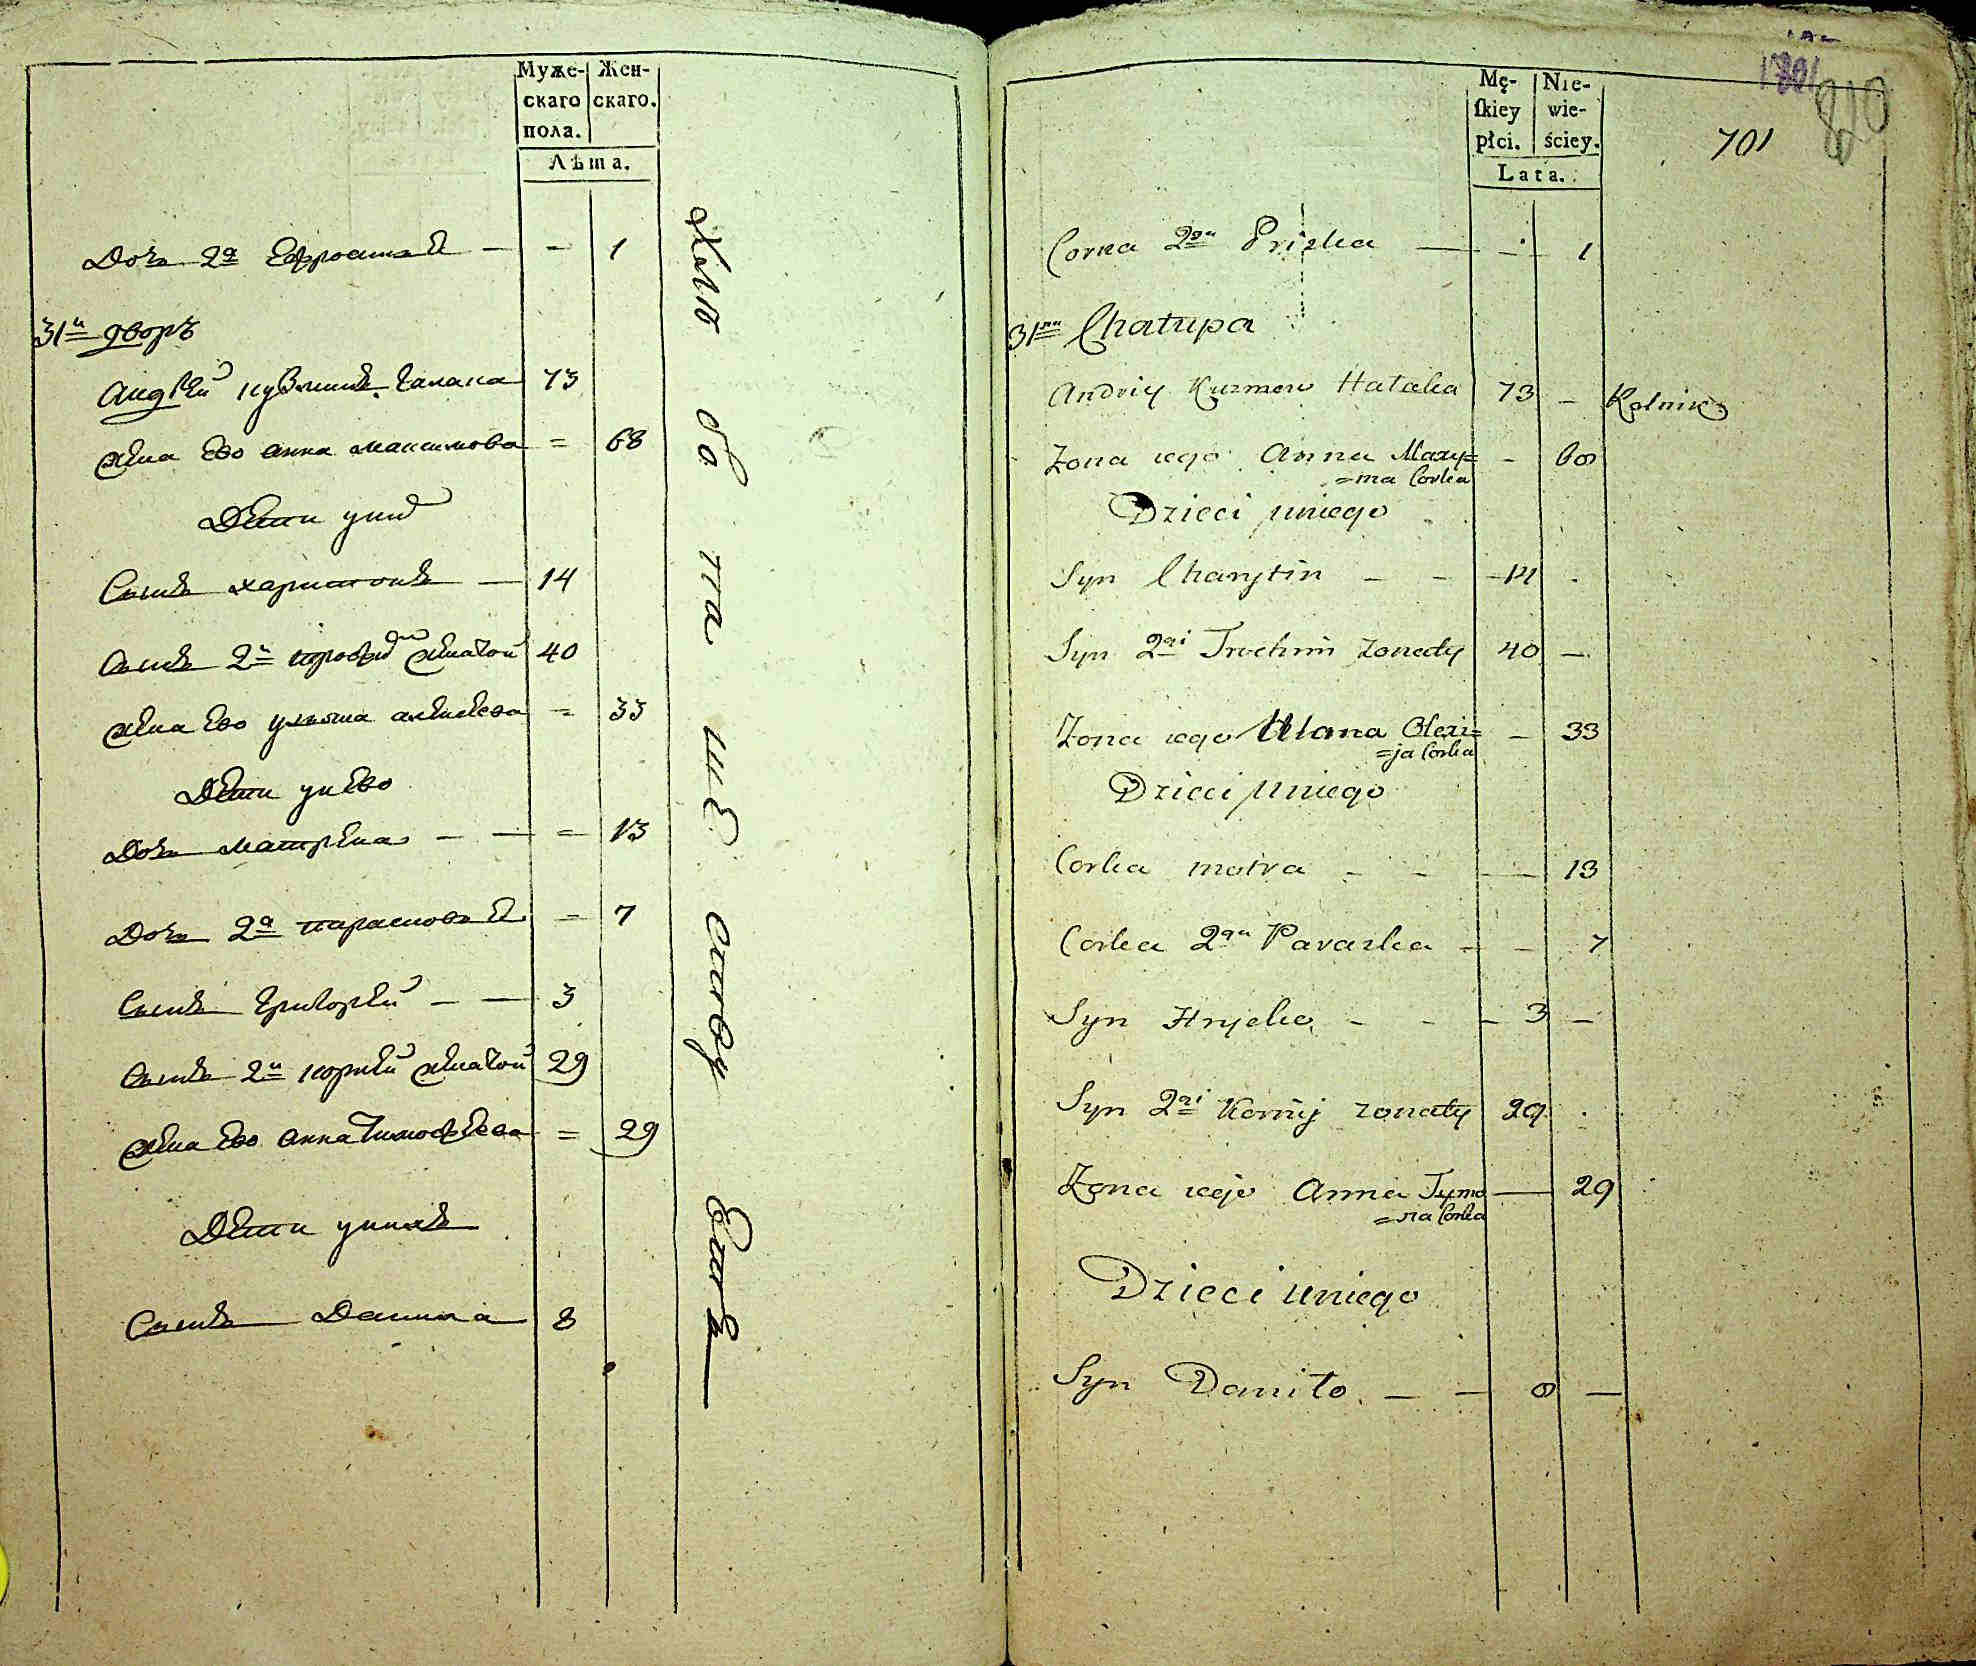 Муже-
скаго
пола.
Жен-
скаго.
Лѣта.
Дочь 2я Ефросинія — - 1
31й дворъ
Андрѣй Кузминъ Галака 73
Жена Ево Анна Максимова = 68
Дѣти у нихъ
Сынъ Харитонъ — 14
Сынъ 2й Трофимъ Женатой 40
Жена Ево Ульяна Алексѣева = 33
Дѣти у нево
Дочь Матрена — — = 13
Дочь 2я Парасковія = 7
Сынъ Григорѣй — — 3
Сынъ 2й Корнѣй Женатой 29
Жена Ево Анна Тимофѣева = 29
Дѣти у нихъ
Сынъ Данила 8
1801
701
Mę-
ſkiey
płci.
Nie-
wie-
ściey.
Lata.
Corka 2ga Prizka — - 1
31sza Chatupa
Andriy Kuzmow Hataka 73 — Rolnik
Zona iego Anna Maxy=
=ma Corka - 68
Dzieci uniego
Syn Charytin - - - 14
Syn 2gi Trochim zonaty 40 —
Zona iego Ulana Olexi=
=ja Corka - 33
Dzieci uniego
Corka motra - - — 13
Corka 2ga Paraska - - 7
Syn Hrycko - - - 3 —
Syn 2gi Kornij zonaty 29
Zona iego Anna Tymo
=sza Corka — 29
Dzieci uniego
Syn Danito — — 8 —